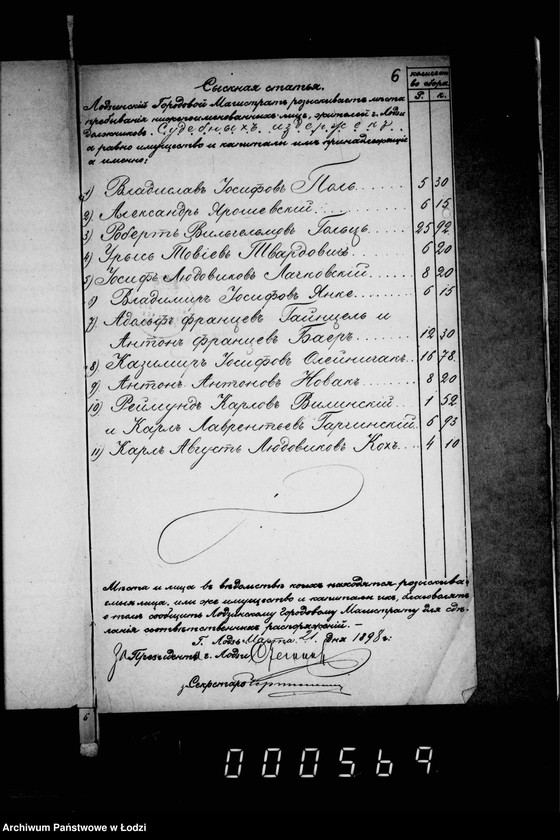 6
количест
во сбора.
Р. к.
Сыскная статья.
Лодзинскій Городовой Магистратъ розыскиваетъ мѣста
пребыванія нижепоименованныхъ лицъ, жителей г. Лодзи
должниковъ. Судебныхъ издержекъ.
а равно имущество и капиталы имъ принадлежащіе
а именно:
1) Владиславъ Іосифовъ Поль....... 5 30
2) Александръ Ярошевскій....... 6 15
3) Робертъ Вильгельмовъ Гольцъ... 25 92
4) Урысь Товіевъ Твардовичъ.... 6 20
5) Іосифъ Людовиковъ Лачковскій.... 8 20
6) Владимиръ Іосифовъ Янке....... 6 15
7) Адольфъ Францевъ Гайнцель и
Антонъ Францевъ Баеръ....... 12 30
8) Казимиръ Іосифовъ Олейничакъ.. 16 78
9) Антонъ Антоновъ Новакъ...... 8 20
10) Реймундъ Карловъ Вилинскій... 1 52
и Карлъ Лаврентьевъ Гарчинскій. 6 93
11) Карлъ Августъ Людовиковъ Кохъ... 4 10
Мѣста и лица въ вѣдомствѣ коихъ находятся розыскива
емыя лица, или же имущество и капиталы ихъ, благоволятъ
о томъ сообщить Лодзинскому Городовому Магистрату для сдѣ
ланія соотвѣтственныхъ распоряженій.—
Г. Лодзь Марта 21 дня 1898 г.
Президентъ г. Лодзи
Секретарь
6
000569
Archiwum Państwowe w Łodzi